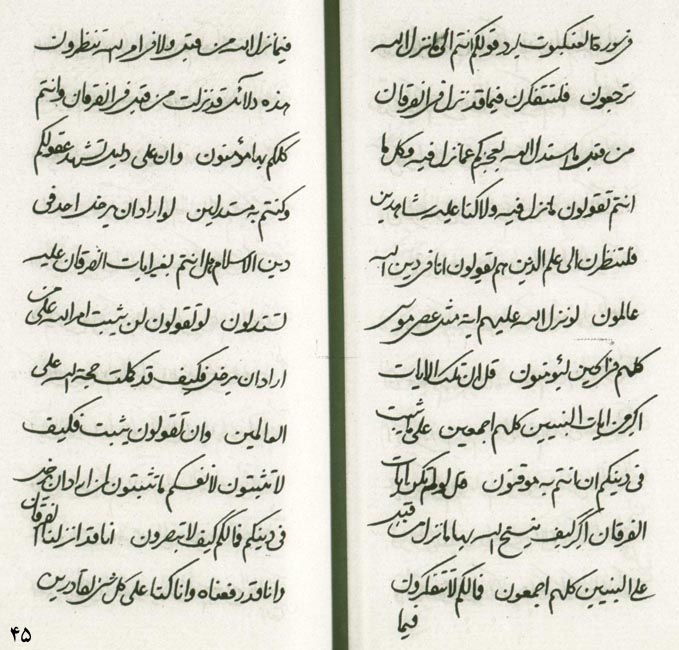 فی سورة العنکبوت لیرد قولکم انتم الی ما نزل الله
ترجعون فلتتفکرن فیما قد نزل فی الفرقان
من قبل ما استدل الله بعجزکم عما نزل فیه وکل ما
انتم تقولون ما نزل فیه ولا کنا علیه شاهدین
فلتنظرن الی علم الذین هم یقولون انا فی دین الله
عالمون لو نزل الله علیهم ایة مثل عصی موسی
کلهم فی الحین لیؤمنون قل ان تلک الایات
اکبر من ایات النبیین کلهم اجمعین علی ما یثبت
فی دینکم ان انتم به موقنون قل لو لم یکن ایات
الفرقان اکبر کیف ینسخ الله بها ما نزل من قبل
علی النبیین کلهم اجمعون فما لکم لا تتفکرون
فیما
فیما نزل الله من قبل ولا فی امر الله تنظرون
هذه دلائل قد نزلت من قبل فی الفرقان وانتم
کلکم بها مؤمنون وان علی دلیل تشهد عقولکم
وکنتم به مستدلین لو اراد ان یدخل احد فی
دین الاسلام هل انتم بغیر ایات الفرقان علیه
لتستدلون لو تقولون لن یثبت امر الله علی من
اراد ان یدخل فکیف قد کملت حجة الله علی
العالمین وان تقولون یثبت فکیف
لا تثبتون لانفسکم ما تثبتون لمن اراد ان یدخل
فی دینکم فما لکم کیف لا تبصرون انا قد انزلنا الفرقان
وانا قد رفعناه وانا کنا علی کل شیء لقادرین
۴۵